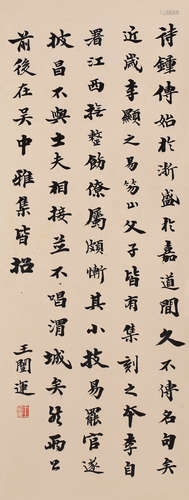 诗鐘傳始於浙盛於嘉道間久不傳名句矣
近歲李顯之易笏山父子皆有集刻之本李自
署江西撫整飭僚屬頗慚其小技易罷官遂
披昌不與士夫相接並不唱渭城矣於兩公
前後在吳中雅集皆招
王闓運